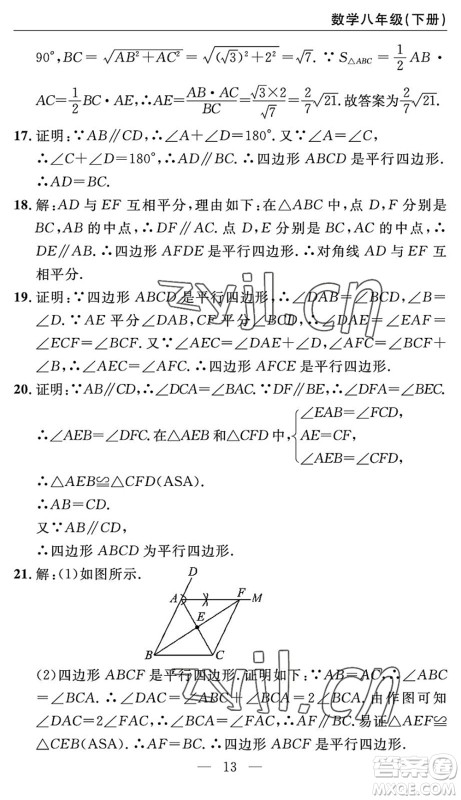 数学八年级(下册)
90°, BC=√(AB²+AC²)=√((√3)²+2²)=√7. ∵ S△ABC=1/2 AB·
AC=1/2 BC·AE, ∴AE=AB·AC/BC=√3×2/√7=2/7√21. 故答案为 2/7√21.
17. 证明:∵AB∥CD, ∴∠A+∠D=180°. 又∵∠A=∠C,
∴∠C+∠D=180°, ∴AD∥BC. ∴四边形 ABCD 是平行四边形.
∴AD=BC.
18. 解:AD 与 EF 互相平分, 理由如下:在△ABC 中, 点 D, F 分别是
BC, AB 的中点, ∴DF∥AC. 点 D, E 分别是 BC, AC 的中点, ∴
DE∥AB. ∴四边形 AFDE 是平行四边形. ∴对角线 AD 与 EF 互
相平分.
19. 证明:∵四边形 ABCD 是平行四边形, ∴∠DAB=∠BCD, ∠B=
∠D. ∵AE 平分∠DAB, CF 平分∠BCD, ∴∠DAE=∠EAF=
∠ECF=∠BCF. ∴∠AEC=∠AFC. ∴四边形 AFCE 是平行四边形.
20. 证明:∵AB∥CD, ∴∠DCA=∠BAC. ∵DF∥BE, ∴∠DFA=∠BEC.
∴∠AEB=∠DFC. 在△AEB 和△CFD 中{∠EAB=∠FCD,
AE=CF,
∠AEB=∠CFD,
∴△AEB≌△CFD(ASA).
∴AB=CD.
又∵AB∥CD,
∴四边形 ABCD 为平行四边形.
21. 解:(1)如图所示.
D
A F M
E
B C
(2)四边形 ABCF 是平行四边形. 证明如下:∵AB=AC, ∴∠ABC
=∠BCA. ∴∠DAC=∠ABC+∠BCA=2∠BCA. 由作图可知
∠DAC=2∠CAF, ∴∠CAF=∠BCA. ∴AF∥BC. 易证△AEF≌
△CEB(ASA). ∴AF=BC. ∴四边形 ABCF 是平行四边形.
13
zyjl.cn
zyjl.cn
答案圈
MXQE.COM